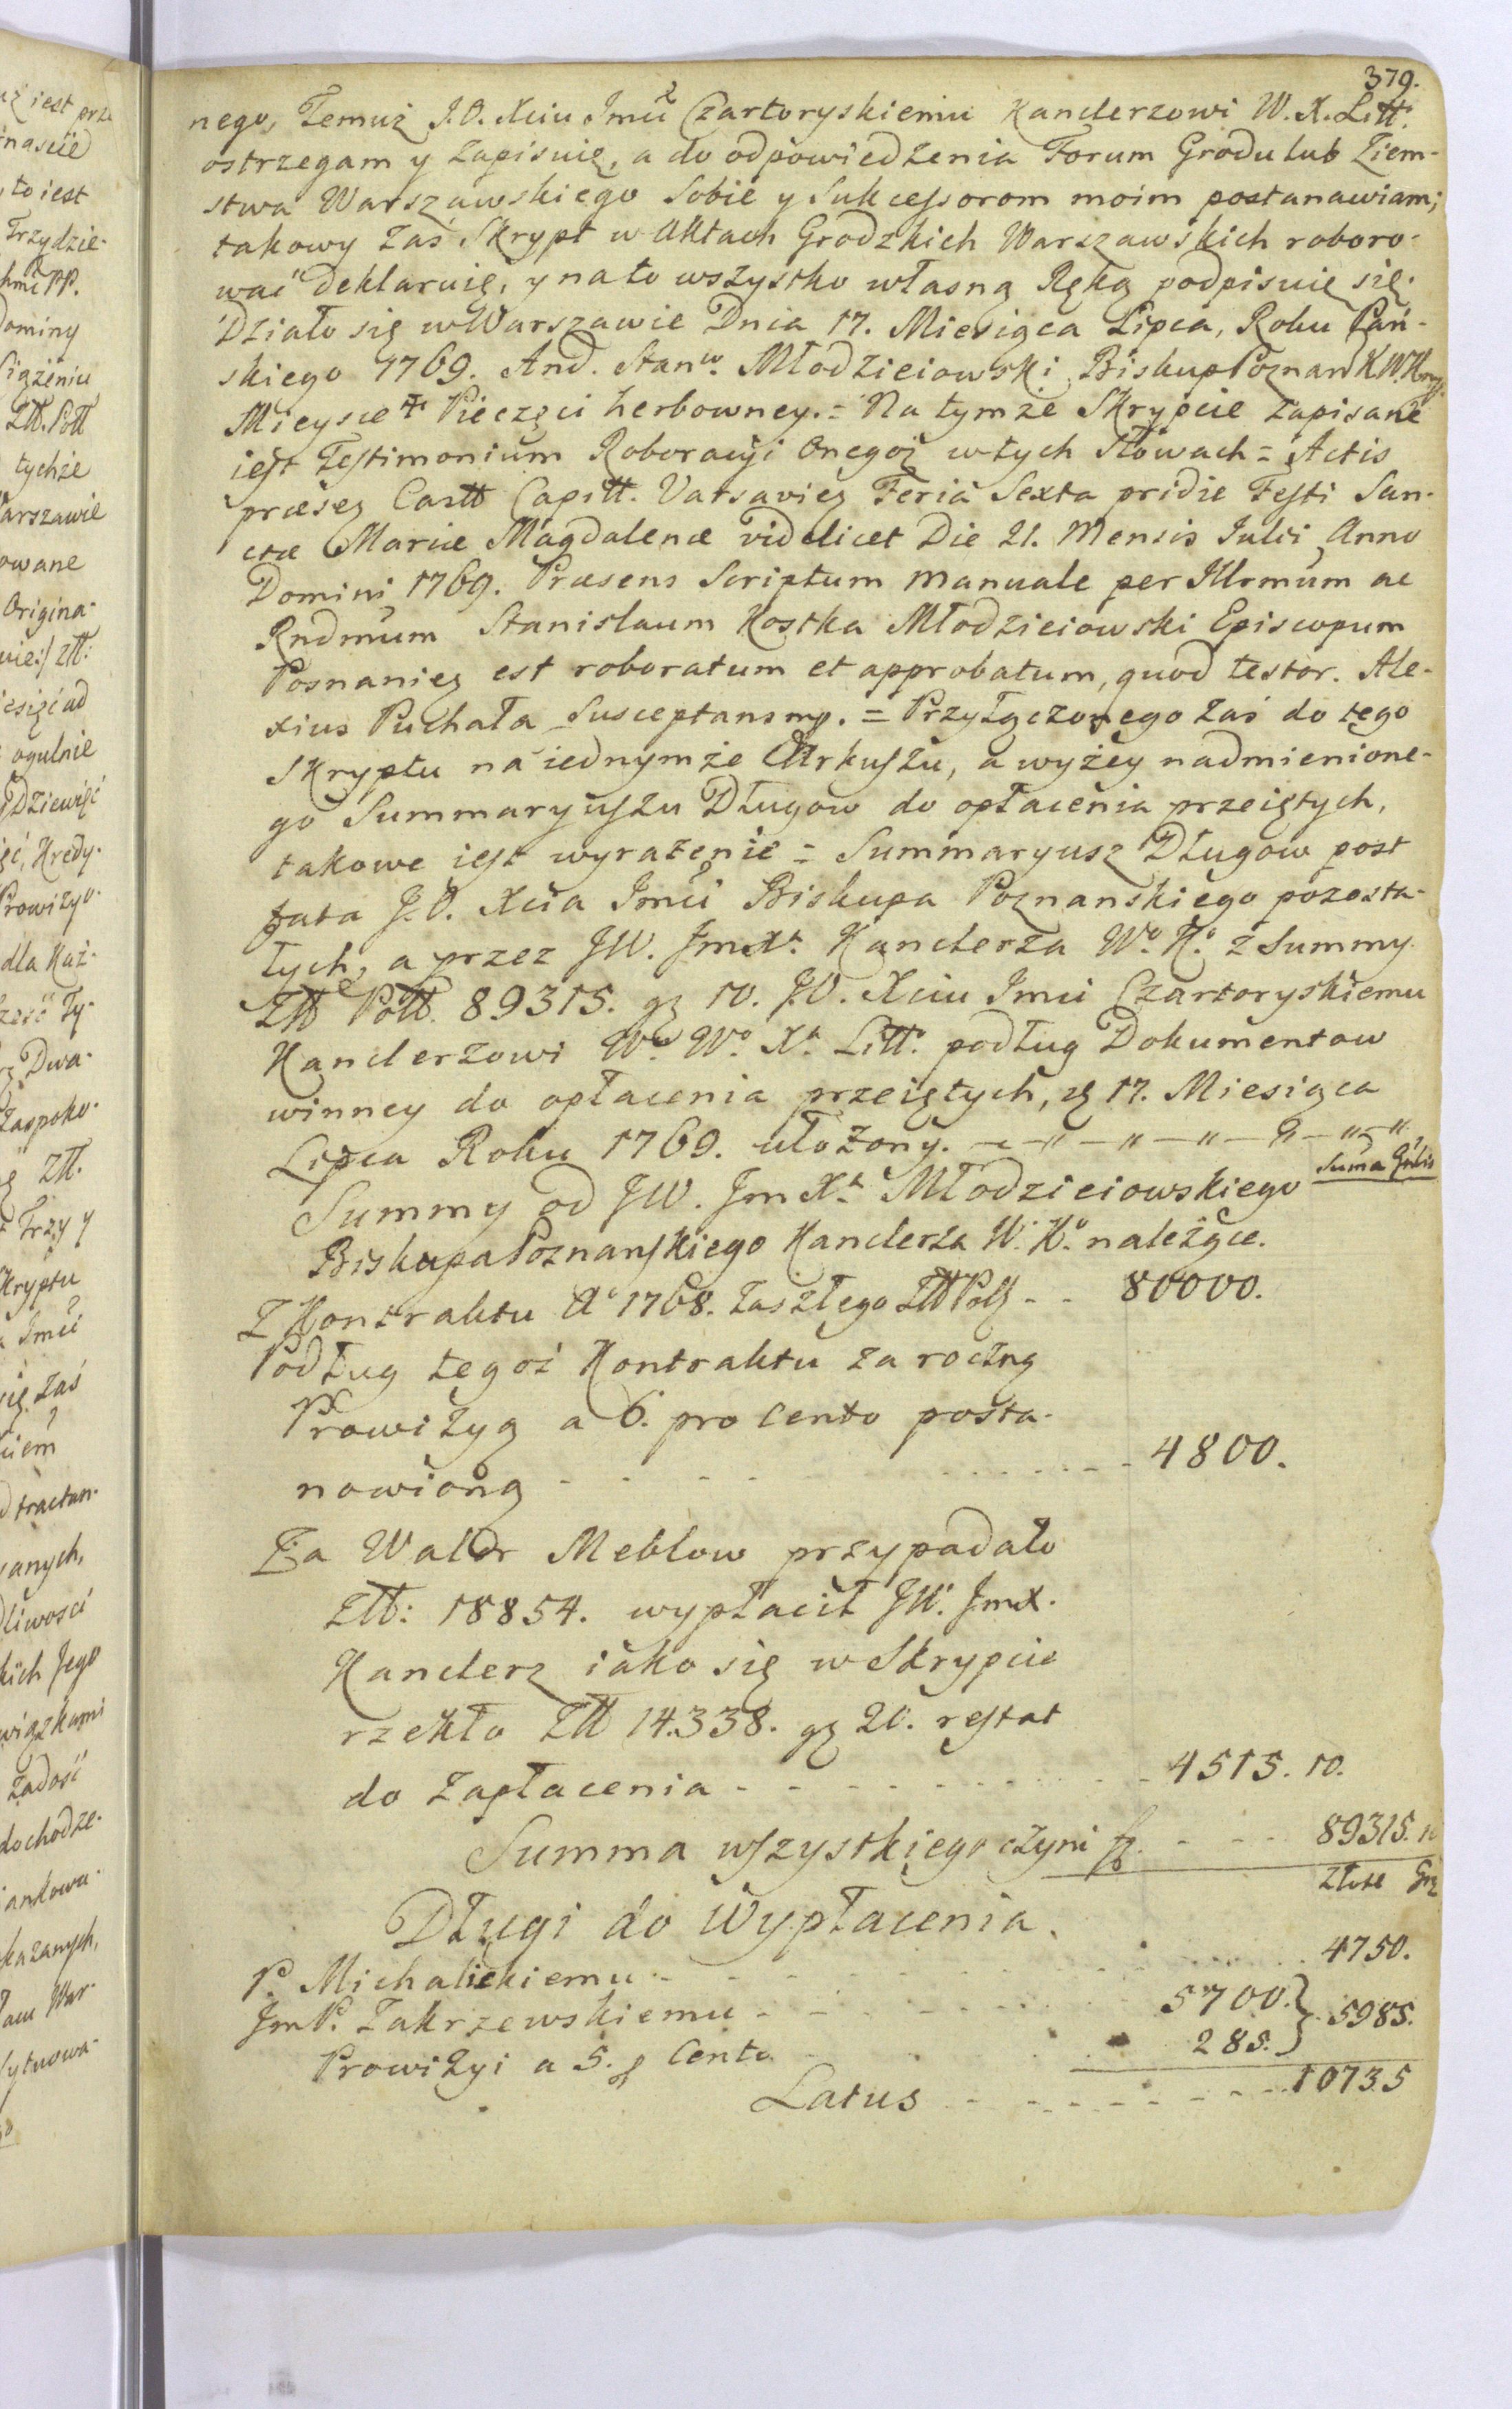 379.
nego, Temuż J.O. Xciu Jmci Czartoryskiemu Kanclerzowi W. X. Litt.
ostrzegam y zapisuię, a do odpowiedzenia Forum Grodu lub Ziem-
stwa Warszawskiego Sobie y Sukcessorom moim postanawiam;
takowy zaś Skrypt w Aktach Grodzkich Warszawskich roboro-
wać deklaruię, y na to wszystko własną Ręką podpisuię się.
Działo się w Warszawie Dnia 17. Miesiąca Lipca, Roku Pań-
skiego 1769. And. Stanw. Młodzieiowski Biskup Poznań K W. Kny
Mieysce Pieczęci herbowney. = Na tymże Skrypcie zapisane
iest Testimonium Roboracyi onegoż w tych Słowach = Actis
præseз Castt Capitt. Varsavieз Feria Sexta pridie Festi San-
ctæ Mariæ Magdalenæ videlicet Die 21. Mensis Julii Anno
Domini 1769. Præsens Scriptum manuale per Illrmum ac
Rndmum Stanislaum Kostka Młodzieiowski Episcopum
Posnanieз est roboratum et approbatum, quod testor. Ale-
xius Puchała Susceptans mp. = Przyłączonego zaś do tego
Skryptu na iednymże Arkuszu, a wyżey nadmienione-
go Summaryuszu Długow do opłacenia przeiętych,
takowe iest wyrażenie = Summaryusz Długow post
fata J.O. Xcia Jmci Biskupa Poznanskiego pozosta-
łych, a przez JW. JmXa. Kanclerza Wo. Ko. z Summy
Ztt Poltt. 89315. gз 10. J.O. Xciu Jmci Czartoryskiemu
Kanclerzowi Wo. Wo. Xa. Litto. podług Dokumentow
winney do opłacenia przeiętych, 17. Miesiąca
Lipca Roku 1769. ułożony. — " — " — " — " — " — "
Summy od JW. JmXa. Młodzieiowskiego
Suma Gulis
Biskupa Poznanskiego Kanclerza W. Ko. należące.
Z Kontraktu Ao 1768. zaszłego Ztt Pols - - 80000.
Podług tegoż Kontraktu za roczną
Prowizyą a 6. pro cento posta-
nowioną - - - - - - - 4800.
Za Walor Meblow przypadało
Ztt: 18854. wypłacił JW. JmX.
Kanclerz iako się w Skrypcie
rzekło Ztt 14338. gз 20. restat
do zapłacenia - - - - - - - 4515. 10.
Summa wszystkiego czyni - - - 89315. 10
Złote Grз
Długi do Wypłacenia.
P. Michalickiemu - - - - - - - 4750.
JmP. Zakrzewskiemu - - - - - 5700. } 5985.
Prowizyi a 5. p Cento - - - - - 285. }
Latus - - - - - - - 10735